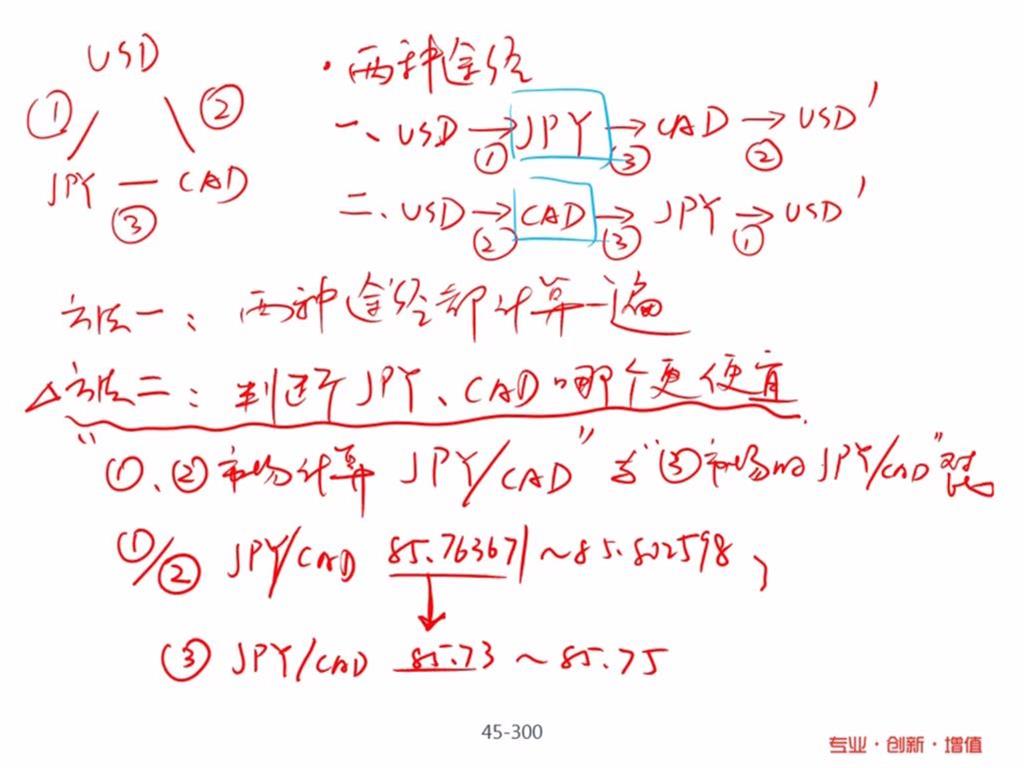 USD
① ②
JPY — CAD
③
· 两种途径
一、USD → JPY → CAD → USD'
① ③ ②
二、USD → CAD → JPY → USD'
② ③ ①
方法一：两种途径都计算一遍
△方法二：判断 JPY、CAD 哪个更便宜
"①、②市场计算 JPY/CAD" 与 "③市场的 JPY/CAD"
①/② JPY/CAD 85.763671 ~ 85.802598
③ JPY/CAD 85.73 ~ 85.75
45-300
专业·创新·增值